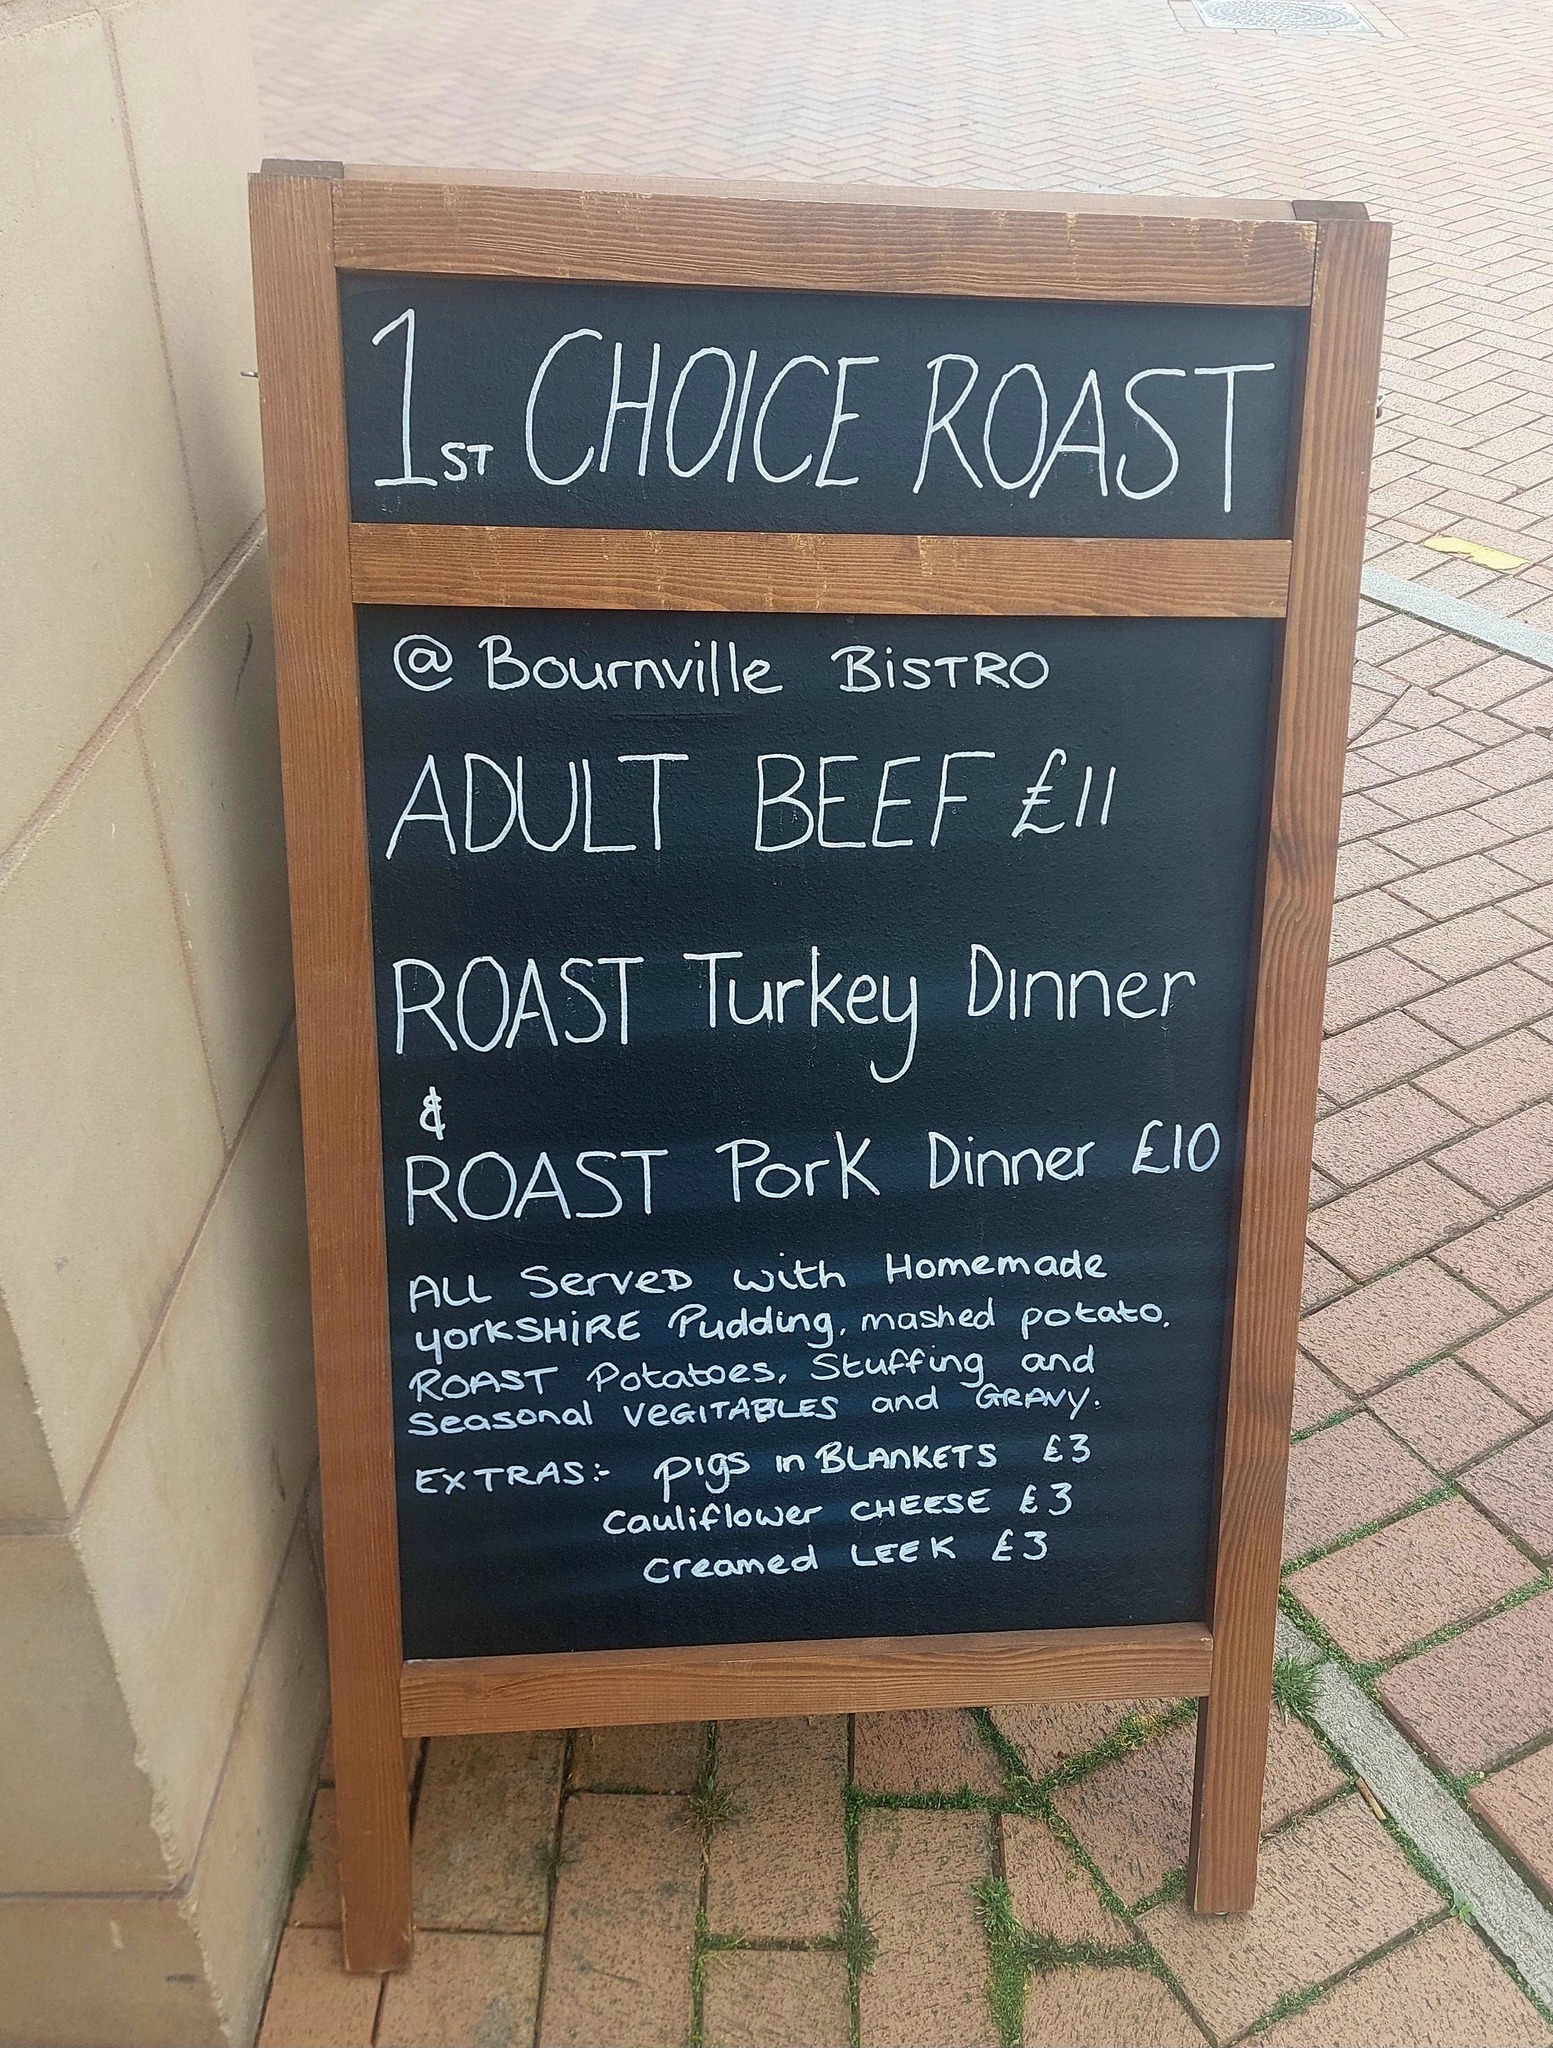 1ST CHOICE ROAST
@ Bournville BiSTRO
ADULT BEEF £11
ROAST Turkey Dinner
&
ROAST Pork Dinner £10
ALL Served with Homemade
yorkSHiRE Pudding, mashed potato,
ROAST Potatoes, Stuffing and
Seasonal VEGITABLES and GRAVY.
EXTRAS:- pigs in BLANKETS £3
Cauliflower CHEESE £3
Creamed LEEK £3